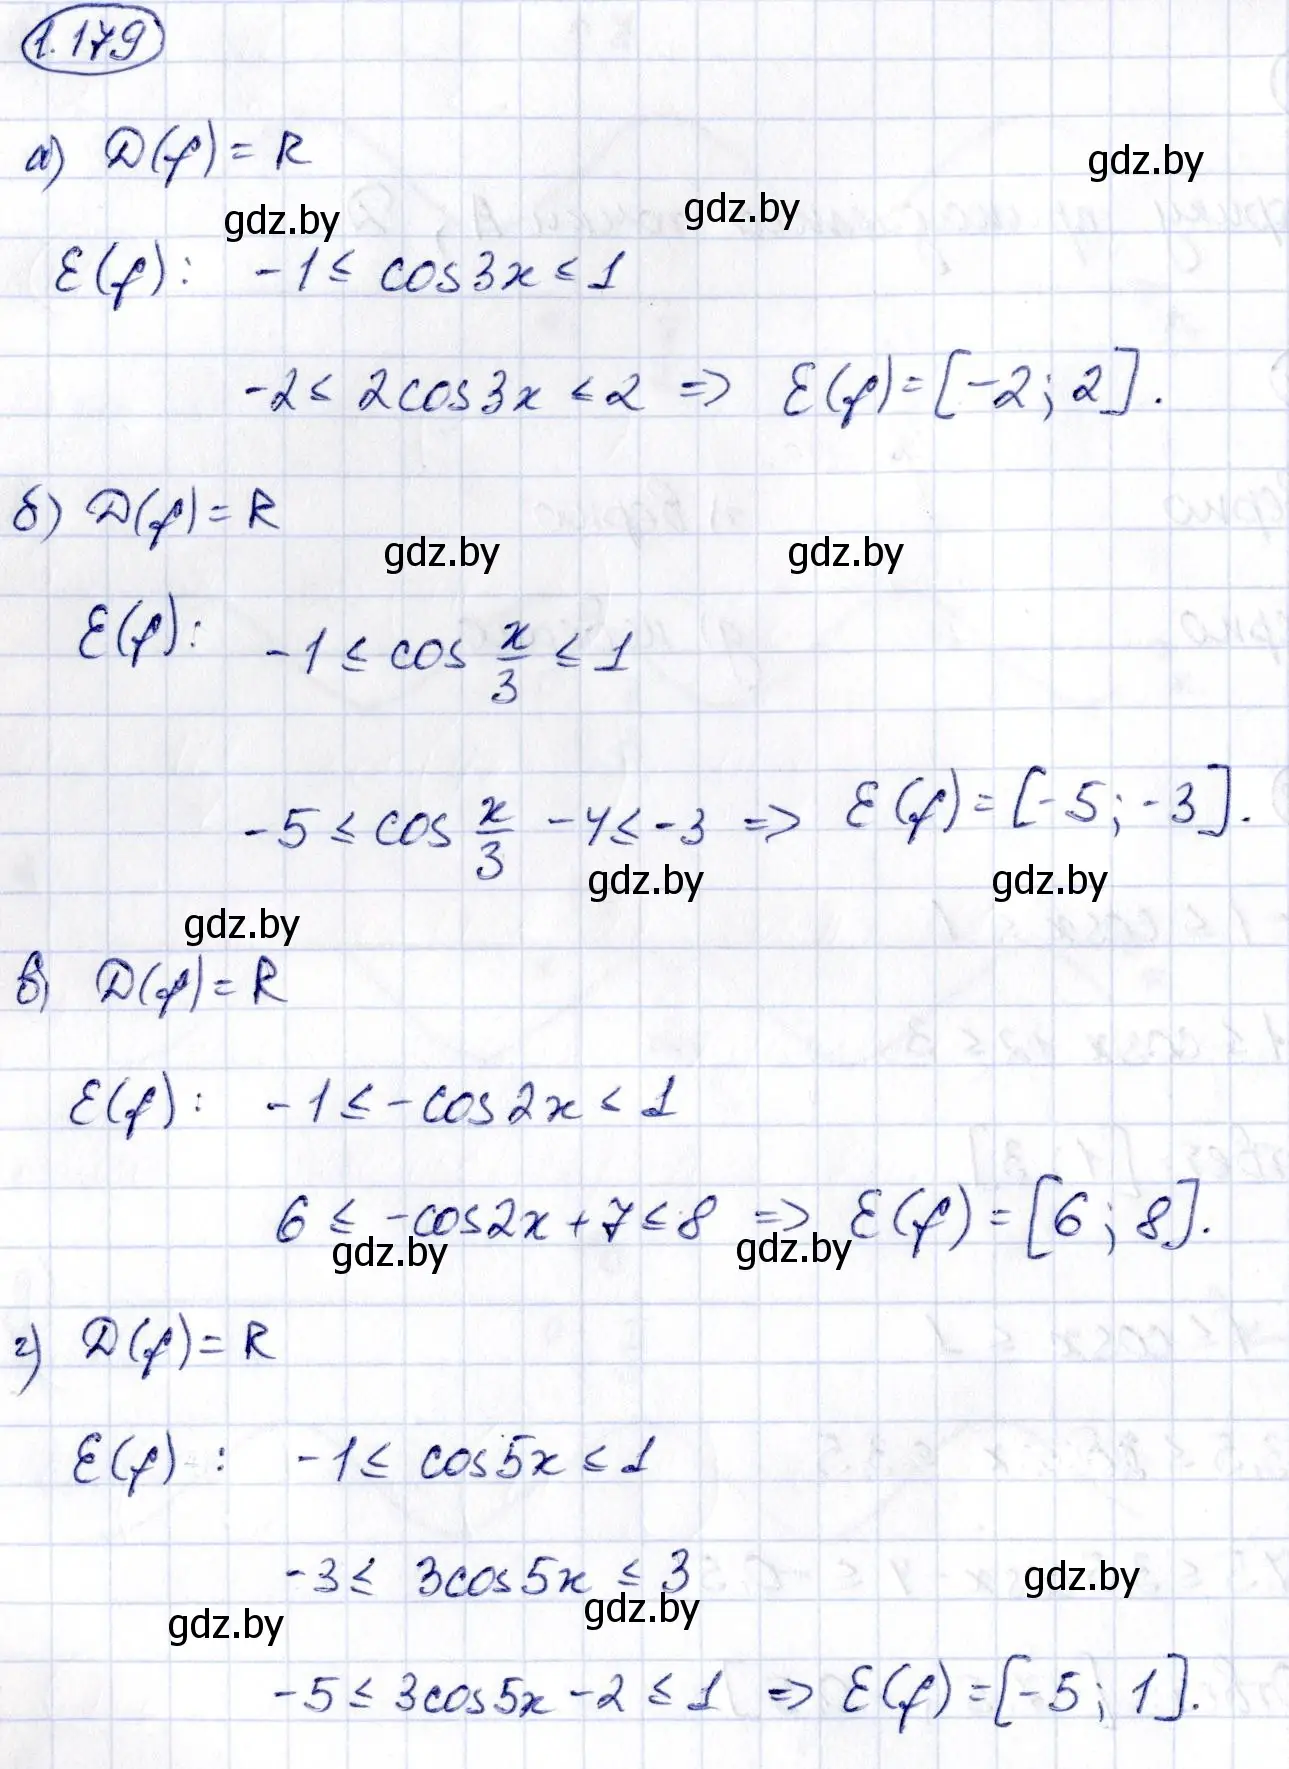 1.179
а) D(f) = R
gdz.by
gdz.by
gdz.by
E(f): -1 ≤ cos3x ≤ 1
-2 ≤ 2cos3x ≤ 2 => E(f) = [-2; 2].
б) D(f) = R
gdz.by
gdz.by
E(f): -1 ≤ cos x/3 ≤ 1
-5 ≤ cos x/3 - 4 ≤ -3 => E(f) = [-5; -3].
gdz.by
gdz.by
gdz.by
в) D(f) = R
E(f): -1 ≤ -cos2x ≤ 1
6 ≤ -cos2x + 7 ≤ 8 => E(f) = [6; 8].
gdz.by
gdz.by
г) D(f) = R
E(f): -1 ≤ cos5x ≤ 1
-3 ≤ 3cos5x ≤ 3
gdz.by
gdz.by
gdz.by
-5 ≤ 3cos5x - 2 ≤ 1 => E(f) = [-5; 1].